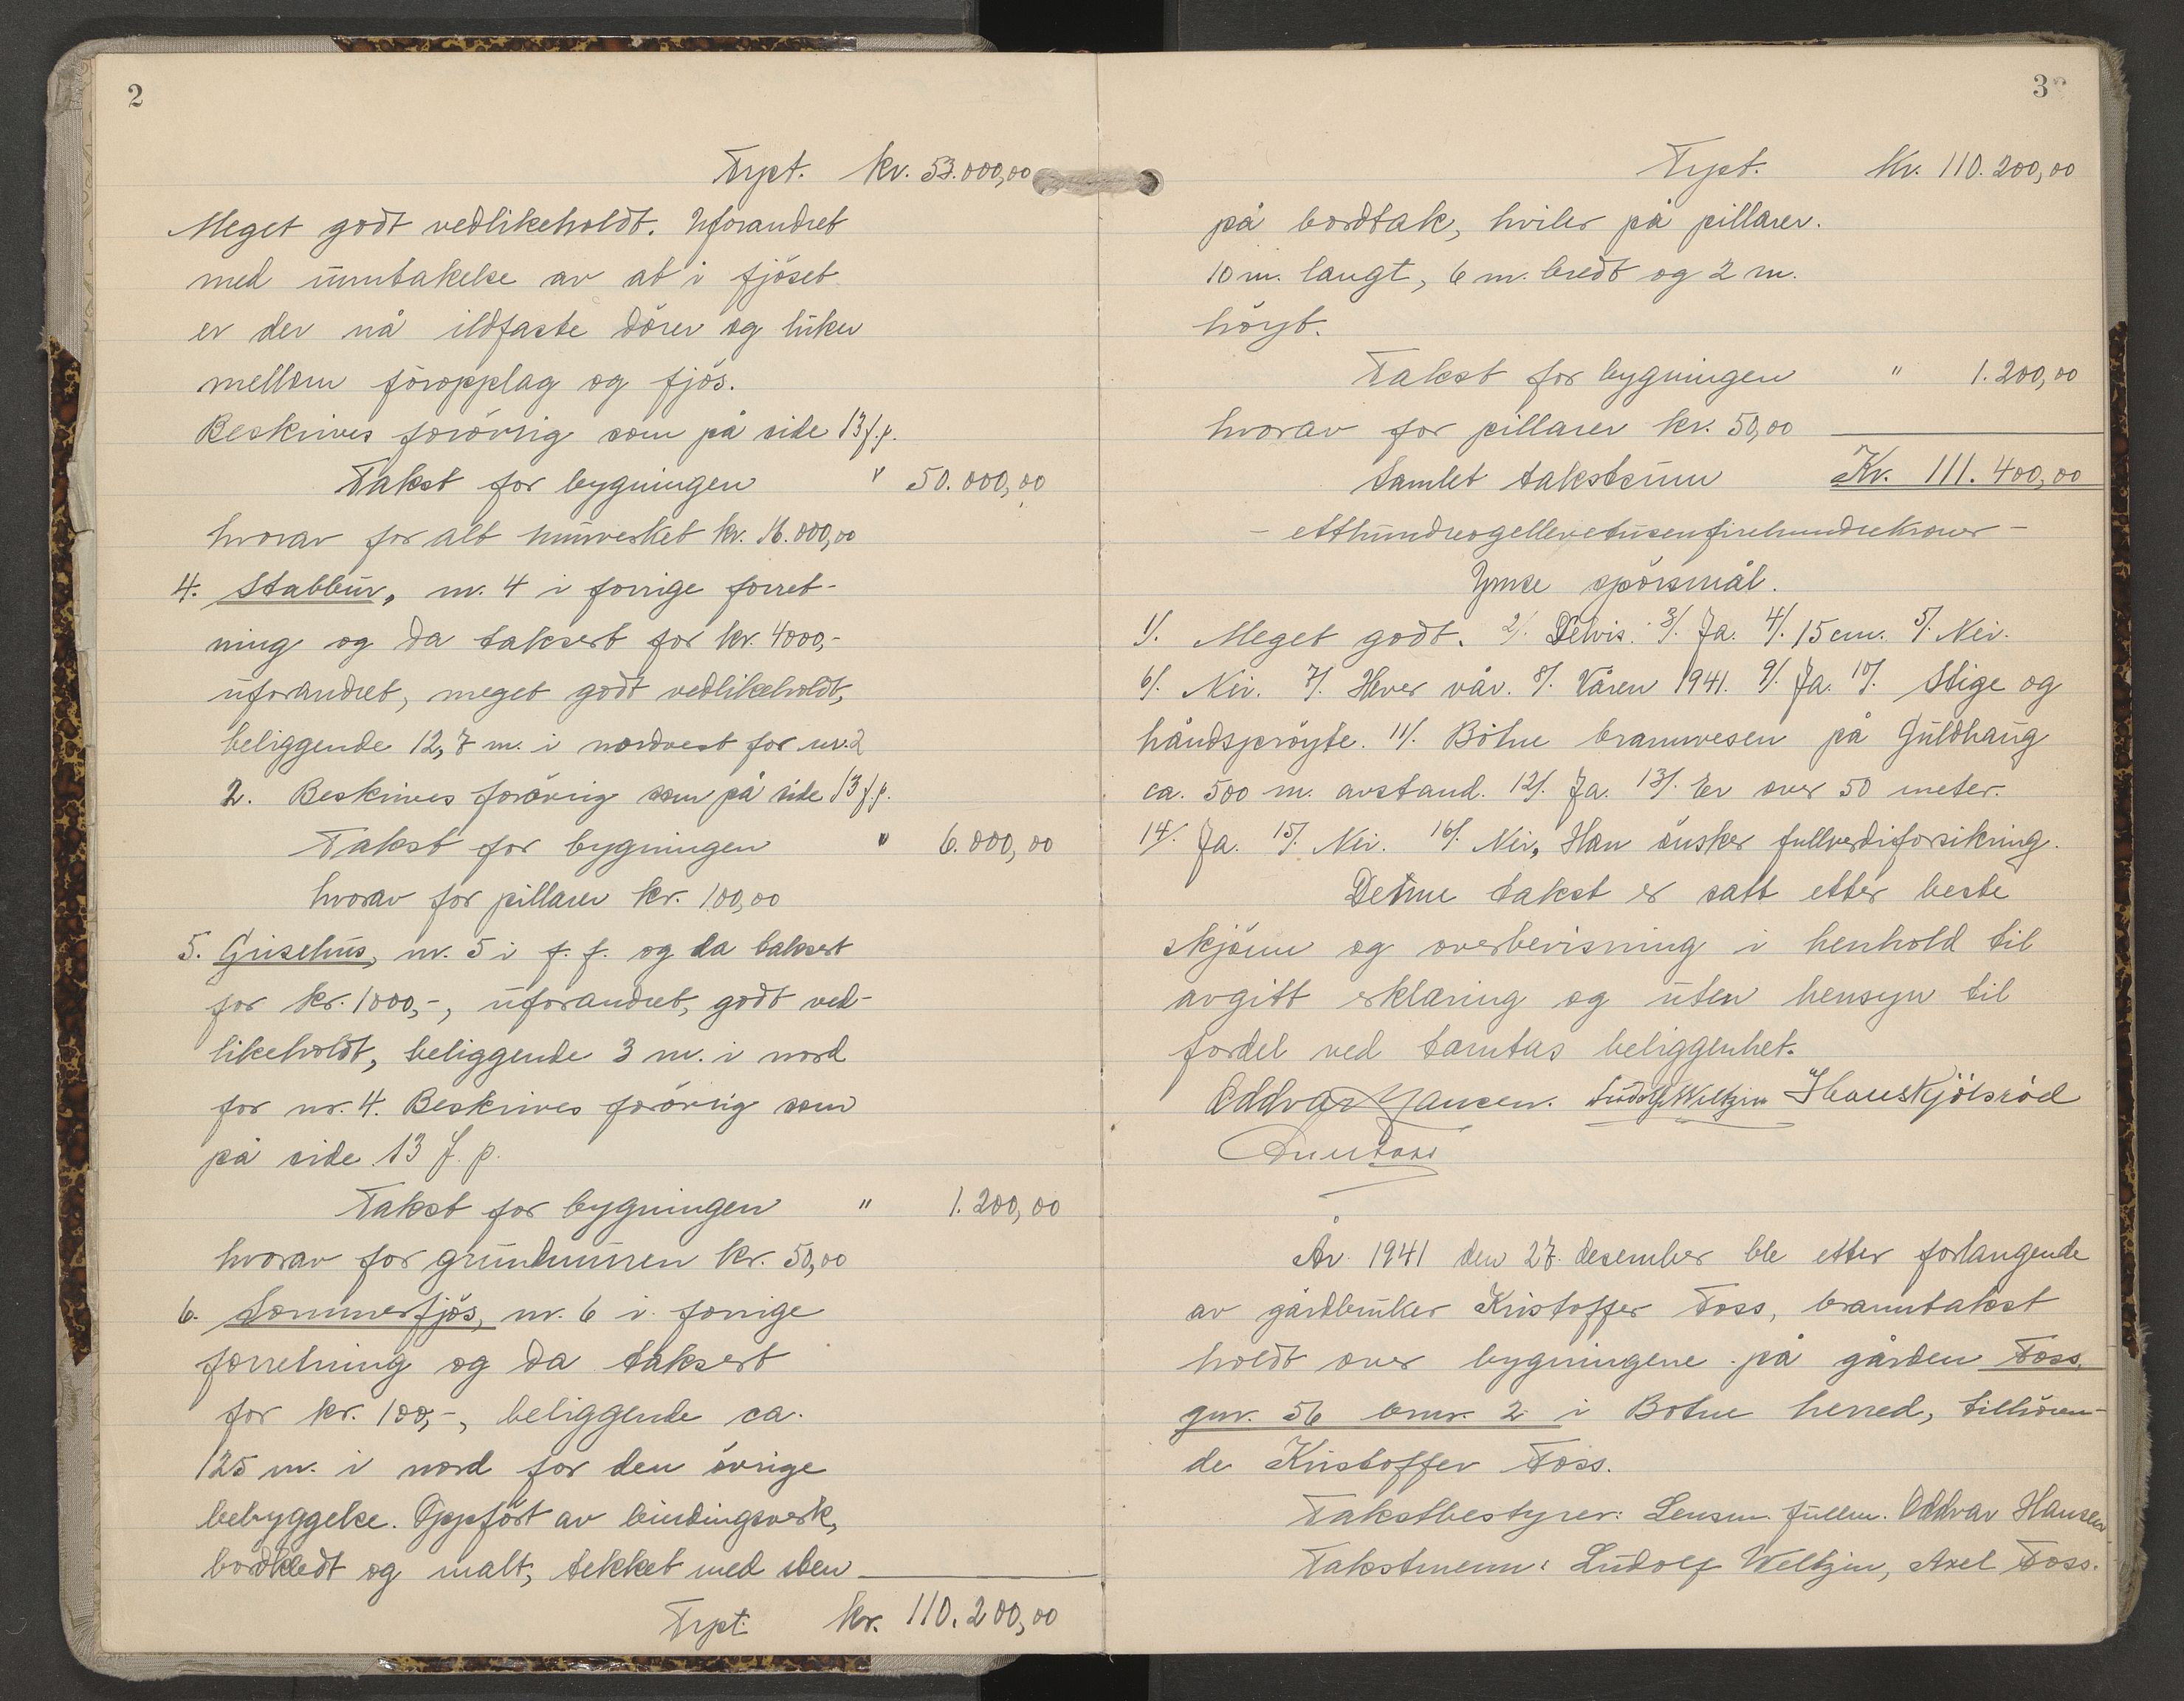 2
Trpt. kr. 53.000,00
Meget godt vedlikeholdt. Uforandret
med unntakelse av at i fjöset
er der nå ildfaste dörer og luker
mellom föropplag og fjös.
Beskrives forövrig som på side 13 f.p.
Takst for bygningen " 50.000,00
hvorav for alt murverket kr. 16.000,00
4. Stabbur, nr. 4 i forrige forret-
ning og da taksert for kr. 4000,-
uforandret, meget godt vedlikeholdt,
beliggende 12,7 m. i nordvest for nr. 2
2. Beskrives forövrig som på side 13 f.p.
Takst for bygningen " 6.000,00
hvorav for pillarer kr. 100,00
5. Grisehus, nr. 5 i f. f. og da taksert
for kr. 1000,-, uforandret, godt ved-
likeholdt, beliggende 3 m. i nord
for nr. 4. Beskrives forövrig som
på side 13 f. p.
Takst for bygningen " 1.200,00
hvorav for grunnmuren kr. 50,00
6. Sommerfjös, nr. 6 i forrige
forretning og da taksert
for kr. 100,-, beliggende ca.
125 m. i nord for den övrige
bebyggelse. Oppfört av bindingsverk,
bordkledt og malt, tekket med sten
Trpt. kr. 110.200,00
3
Trpt. Kr. 110.200,00
på bordtak, hviler på pillarer.
10 m. langt, 6 m. bredt og 2 m.
höyt.
Takst for bygningen " 1.200,00
hvorav for pillarer kr. 50,00
Samlet takstsum Kr. 111.400,00
- etthundreogellevetusenfirehundrekroner -
Ymse spörsmål.
1/. Meget godt. 2/. Delvis. 3/. Ja. 4/. 15 cm. 5/. Nei.
6/. Nei. 7/. Hver vår. 8/. Våren 1941. 9/. Ja. 10/. Stige og
håndspröyte. 11/. Botne brannvesen på Gullhaug
ca. 500 m. avstand. 12/. Ja. 13/. Er over 50 meter.
14/. Ja. 15/. Nei. 16/. Nei, Han önsker fullverdiforsikring.
Denne takst er satt etter beste
skjönn og overbevisning i henhold til
avgitt erklæring og uten hensyn til
fordel ved tomtas beliggenhet.
Oddvar Hansen. Ludolf Weltzin Hans Kjölsröd
År 1941 den 27. desember ble etter forlangende
av gårdbruker Kristoffer Foss, branntakst
holdt over bygningene på gården Foss,
gnr. 56 bnr. 2 i Botne herred, tilhören-
de Kristoffer Foss.
Takstbestyrer: Lensm. fullm. Oddvar Hansen
Takstmenn: Ludolf Weltzin, Axel Foss.